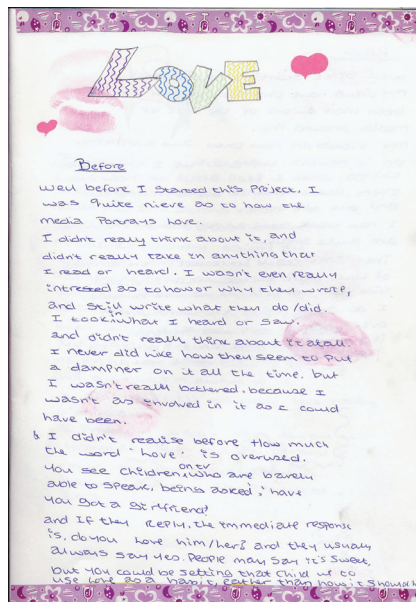 LOVE
Before
Well before I started this Project. I
was quite nieve as to how the
media Portrays Love.
I didn't really think about it, and
didn't really take in anything that
I read or heard. I wasn't even really
intrested as to how or why they wrote,
and still write what they do/did.
I took in what I heard or saw.
and didn't really think about it atall.
I never did like how they seem to Put
a dampner on it all the time. but
I wasn't really bothered. because I
wasn't as involved in it as I could
have been.
& I didn't realise before How much
the word 'Love' is overused.
You see children on tv who are barely
able to speak, being asked; 'have
you got a girlfriend'
and If they Reply, the immediate response
is, do you love him/her? and they usually
always say yes. People may say it's sweet,
but you could be setting that child up to
use love as a habit, rather than how it should